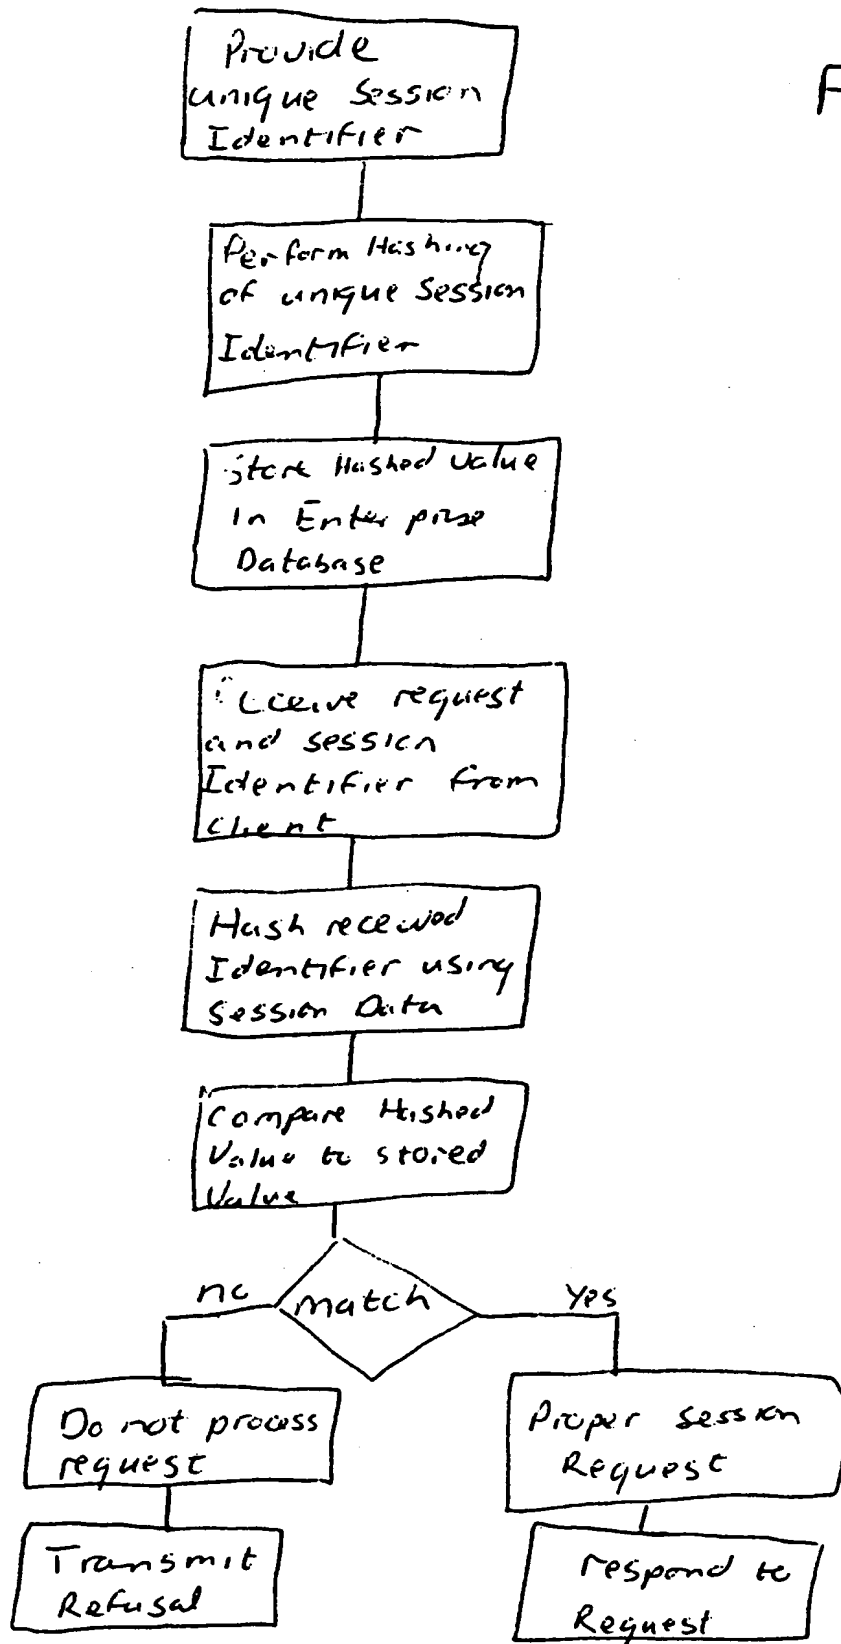 Provide
unique Session
Identifier
F
Perform Hashing
of unique Session
Identifier
Store Hashed Value
In Enterprise
Database
receive request
and session
Identifier from
client
Hash received
Identifier using
Session Data
Compare Hashed
Value to stored
Value
no
match
Yes
Do not process
request
Proper session
Request
Transmit
Refusal
respond to
Request